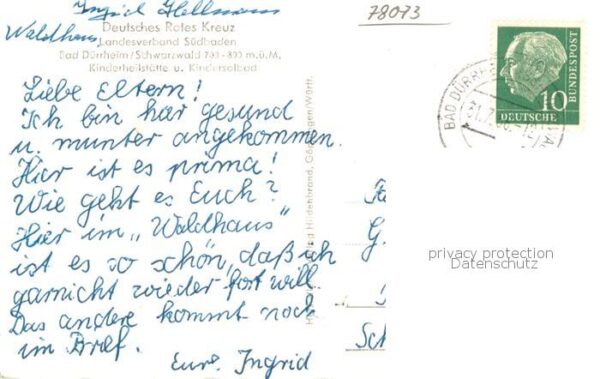 Ingrid Hellmann
78073
Waldhaus
Deutsches Rotes Kreuz
Landesverband Südbaden
Bad Dürrheim/Schwarzwald 700-800 m.ü.M.
Kinderheilstätte u. Kindersolbad
Liebe Eltern!
Ich bin hår gesund
u. munter angekommen.
Hier ist es prima!
Wie geht es Euch?
Hier im „Waldhaus"
ist es so schön, daß ich
garnicht wieder fort will.
Das andere kommt noch
im Brief.
Eure Ingrid
Hildenbrand, Göppingen/Württ.
10
DEUTSCHE
BUNDESPOST
BAD DÜRRHEIM
31.7.
G.
Sch
privacy protection
Datenschutz